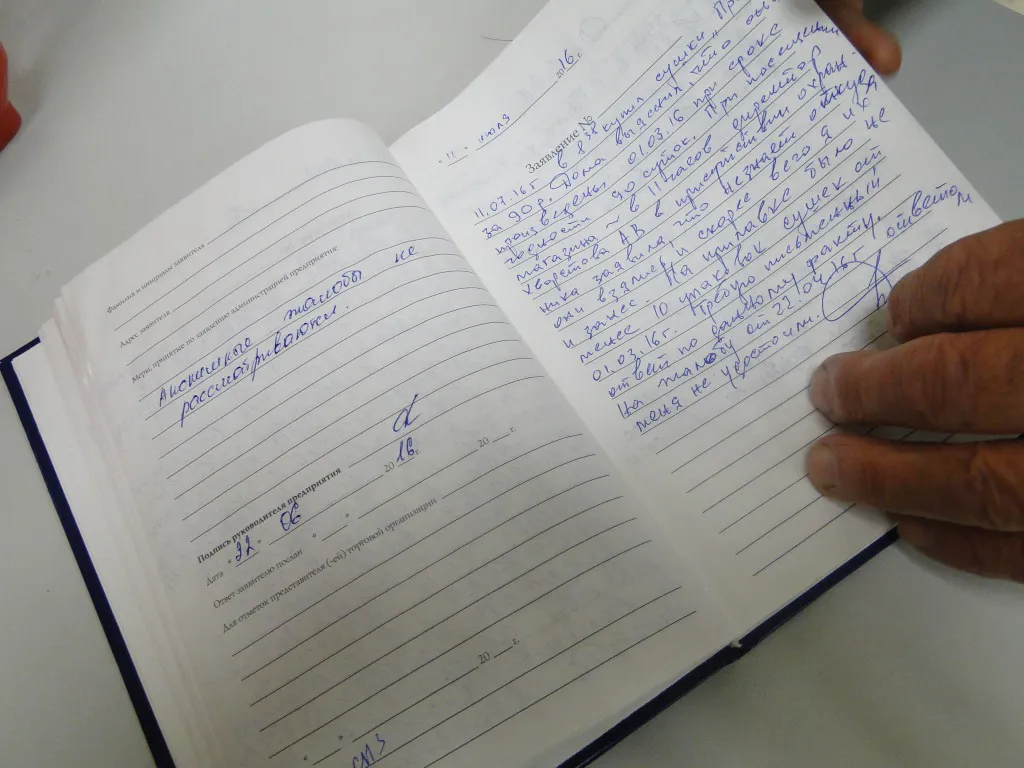 Фамилия и инициалы заявителя
Адрес заявителя
Меры, принятые по заявлению администрацией предприятия:
Анонимные жалобы не
рассматриваются.
Подпись руководителя предприятия
Дата "22" 06 2016 г.
Ответ заявителю послан " " 20 г.
Для отметок представителя (-ей) торговой организации
" " 20 г.
"11" июля 2016 г.
Заявление №
11.07.16г. в 8 купил сушки
за 90 р. Дома выяснил что
произведены 01.03.16 при сроке
годности 90 суток. При посещении
магазина в 11 часов
Хвостова АВ в присутствии охран
ника заявила что незнает откуда
они взялись и скорее всего я их
и занес. На прилавке было не
менее 10 упаковок сушек от
01.03.16г. Требую письменный
ответ по данному факту.
На жалобу от 22.04.16г ответом
меня не удостоили.